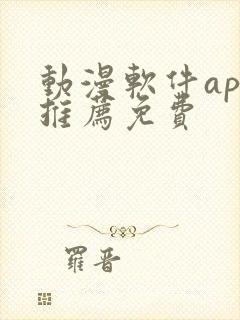 動漫軟件ap
推薦免費
羅晉